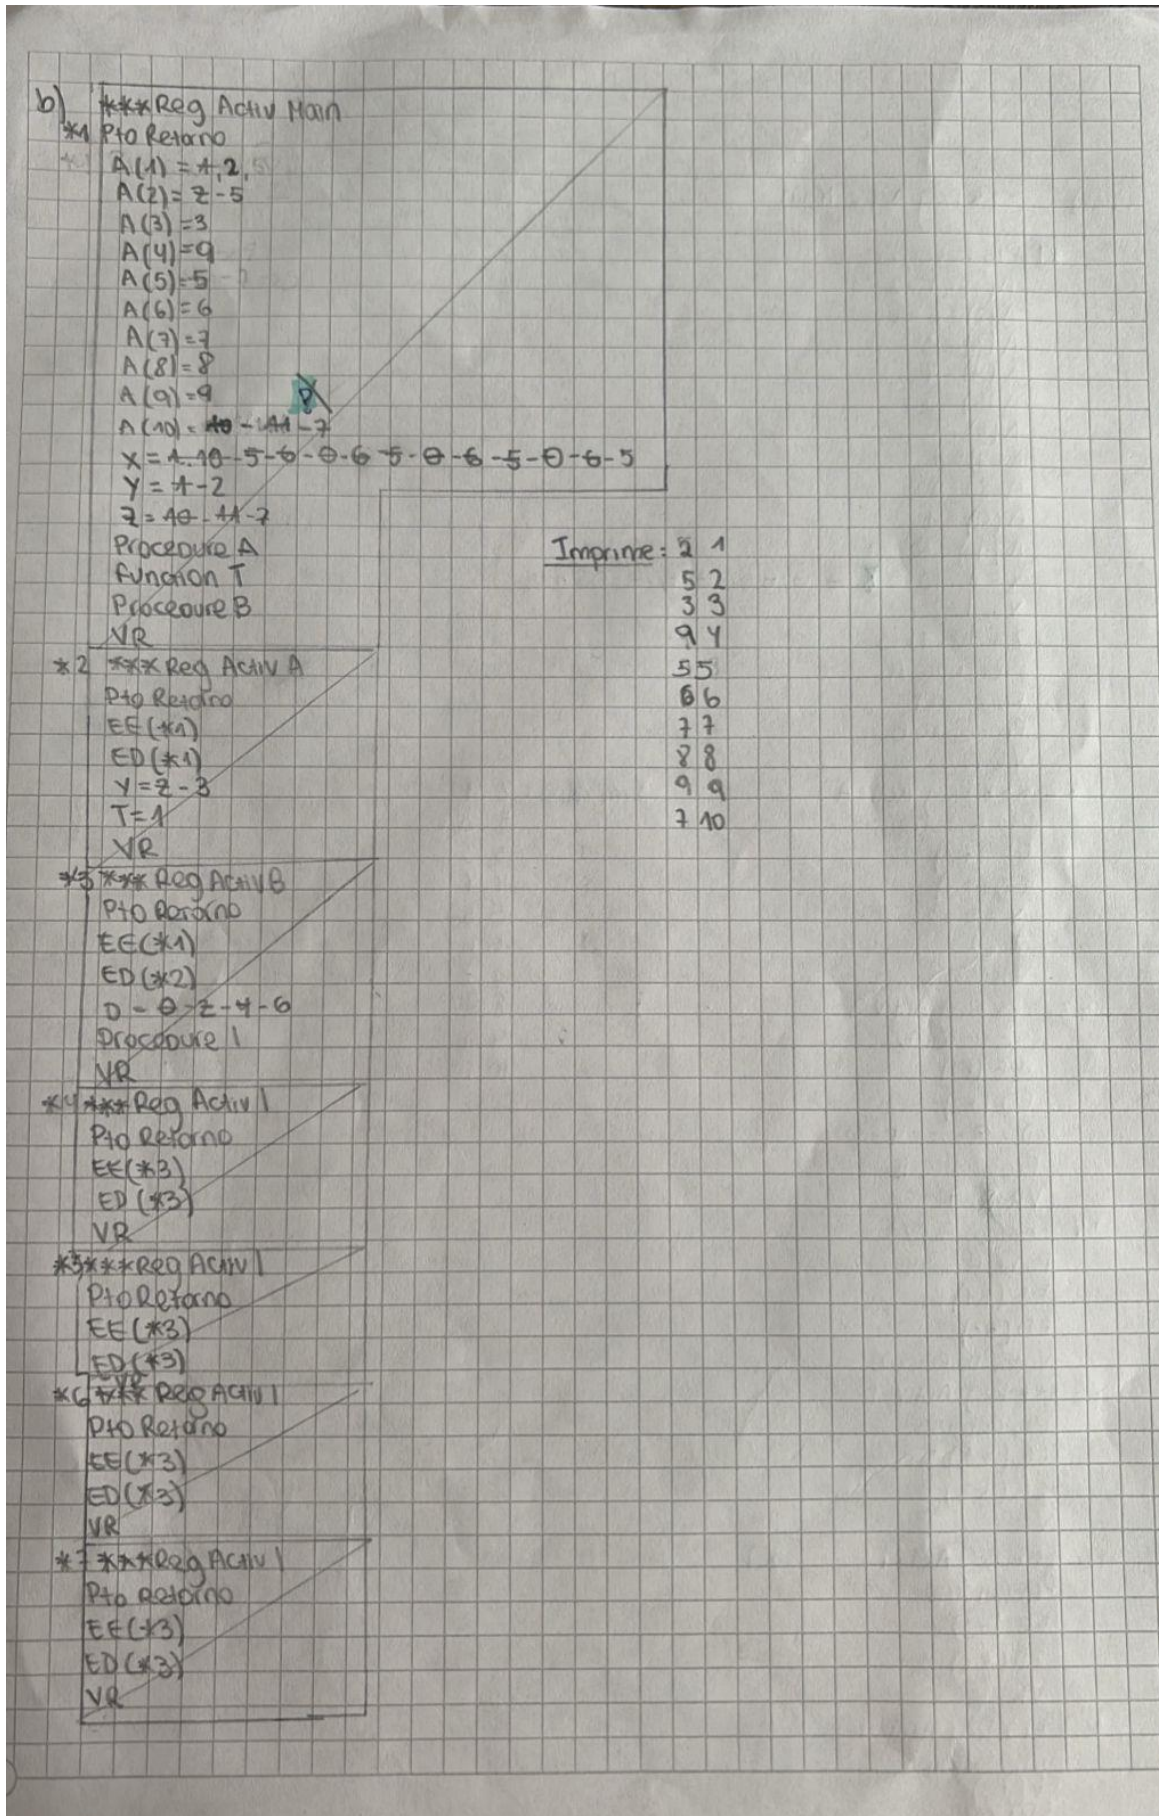 b) ***Reg Activ Main
*1 Pto Retorno
A(1) = 1, 2,
A(2) = 2 - 5
A(3) = 3
A(4) = 9
A(5) = 5
A(6) = 6
A(7) = 7
A(8) = 8
A(9) = 9
A(10) = 10 - 11 - 7
X = 1-10-5-6-0-6-5-0-6-5-0-6-5
Y = 1-2
Z = 10-11-7
Procedure A
Function T
Procedure B
VR
*2 *** Reg Activ A
Pto Retorno
EE(*1)
ED(*1)
Y = 2 - 3
T = 1
VR
*3 *** Reg Activ B
Pto Retorno
EE(*1)
ED(*2)
D - 0 - 2 - 4 - 6
Procedure I
VR
*4 *** Reg Activ I
Pto Retorno
EE(*3)
ED(*3)
VR
*5 *** Reg Activ I
Pto Retorno
EE(*3)
ED(*3)
VR
*6 *** Reg Activ I
Pto Retorno
EE(*3)
ED(*3)
VR
*7 *** Reg Activ I
Pto Retorno
EE(*3)
ED(*3)
VR
Imprime: 2 1
5 2
3 3
9 4
5 5
6 6
7 7
8 8
9 9
7 10